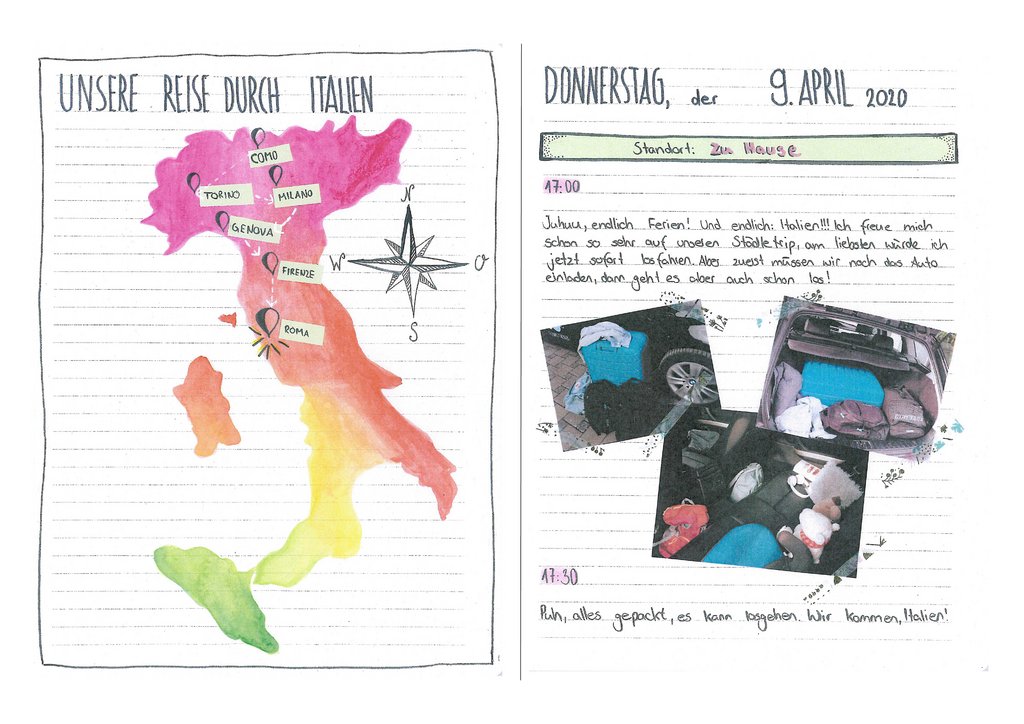 UNSERE REISE DURCH ITALIEN
COMO
TORINO
MILANO
GENOVA
FIRENZE
ROMA
N
W
O
S
DONNERSTAG, der 9. APRIL 2020
Standort: Zu Hause
17:00
Juhuu, endlich Ferien! Und endlich: Italien!!! Ich freue mich
schon so sehr auf unseren Städletrip, am liebsten würde ich
jetzt sofort losfahren. Aber zuerst müssen wir noch das Auto
einladen, dann geht es aber auch schon los!
17:30
Puh, alles gepackt, es kann losgehen. Wir kommen, Italien!